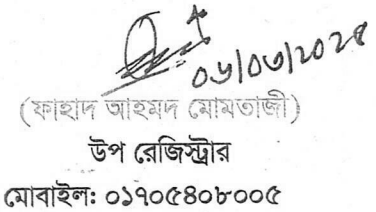 ০৬/০৩/২০২৫
(ফাহাদ আহমদ মোমতাজী)
উপ রেজিস্ট্রার
মোবাইল: ০১৭০৫৪০৮০০৫